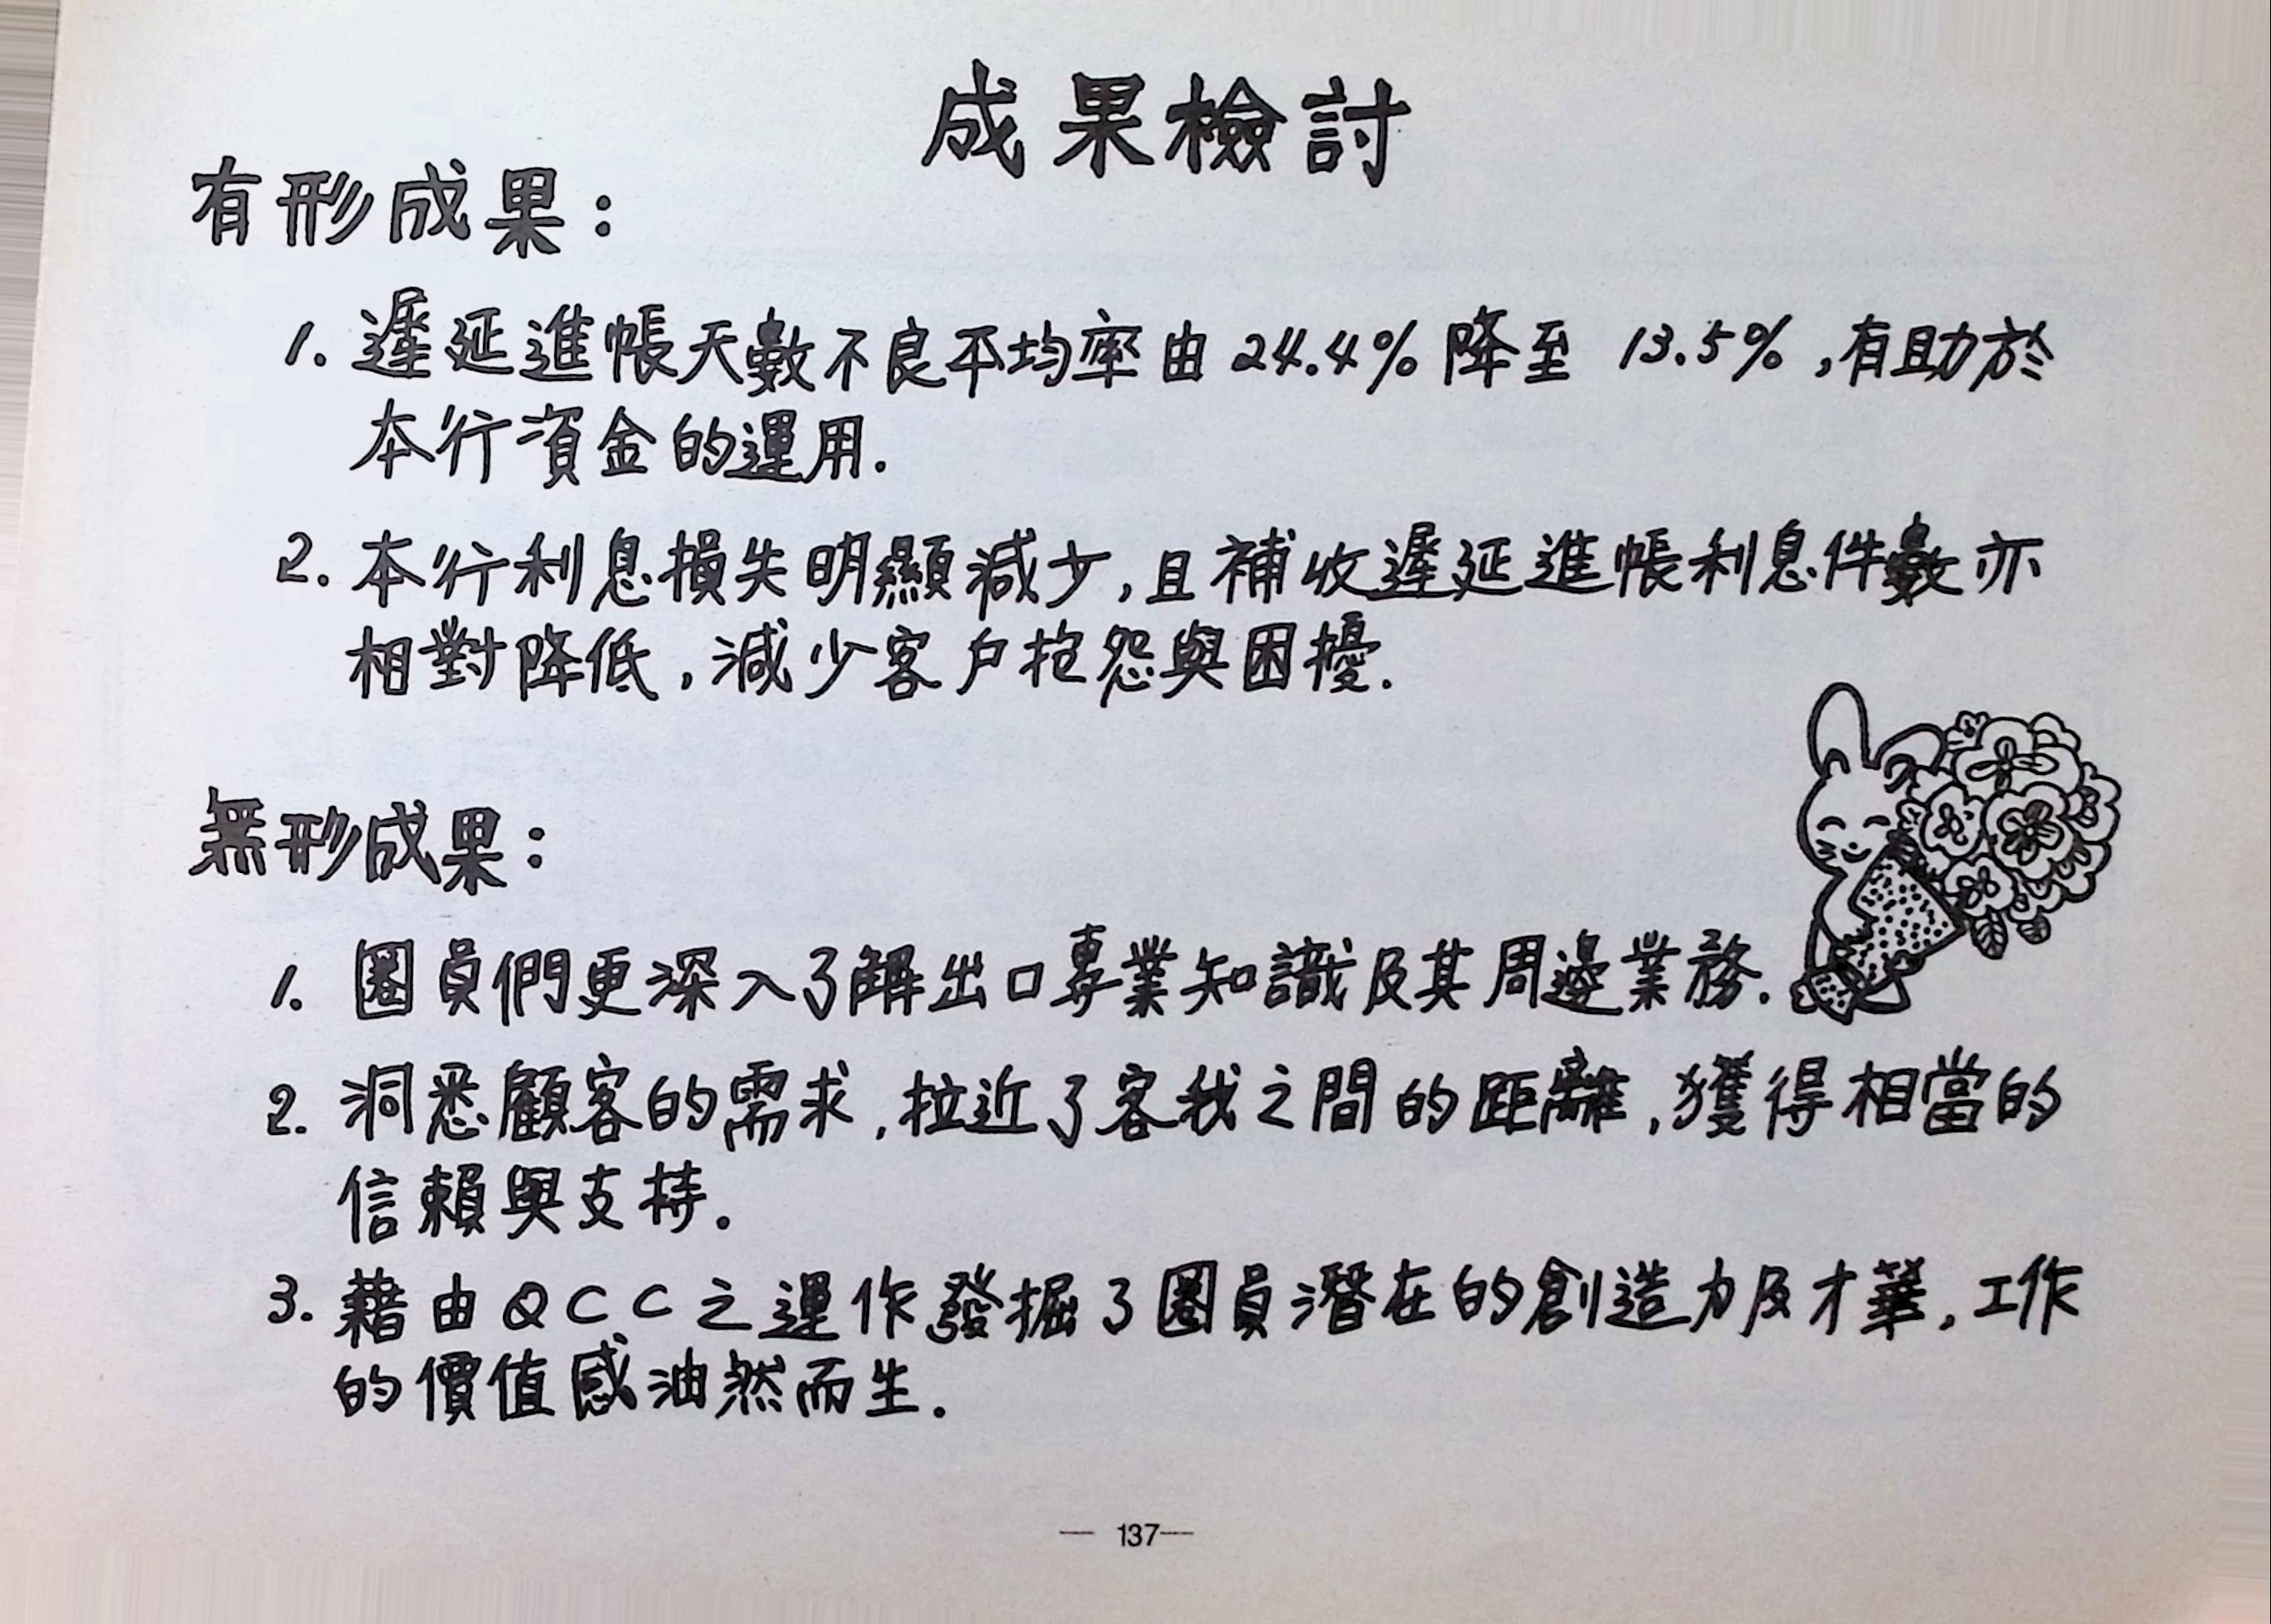 成果檢討
有形成果：
1. 遲延進帳天數不良平均率由 24.4% 降至 13.5% ,有助於
本行資金的運用.
2. 本行利息損失明顯減少,且補收遲延進帳利息件數亦
相對降低,減少客戶抱怨與困擾.
無形成果：
1. 圈員們更深入了解出口專業知識及其周邊業務.
2. 洞悉顧客的需求,拉近了客我之間的距離,獲得相當的
信賴與支持.
3. 藉由QCC之運作發掘了圈員潛在的創造力及才華,工作
的價值感油然而生.
— 137—